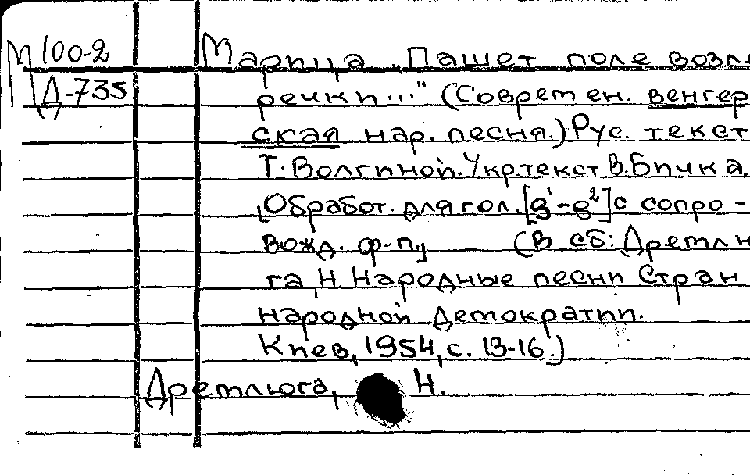 М 100-2
Д-735
Марица „Пашет поле возле
речки..." (Соврем ен. венгер
ская нар. песня.) Рус. текст
Т. Волгиной. Укр. текст В. Бичка.
Обработ. для гол. [g¹-g²] с сопро-
вожд. ф-п. (В сб: Дремлю
га, Н. Народные песни Стран
народной Демократии.
Киев, 1954, с. 13-16.)
Дремлюга, Н.